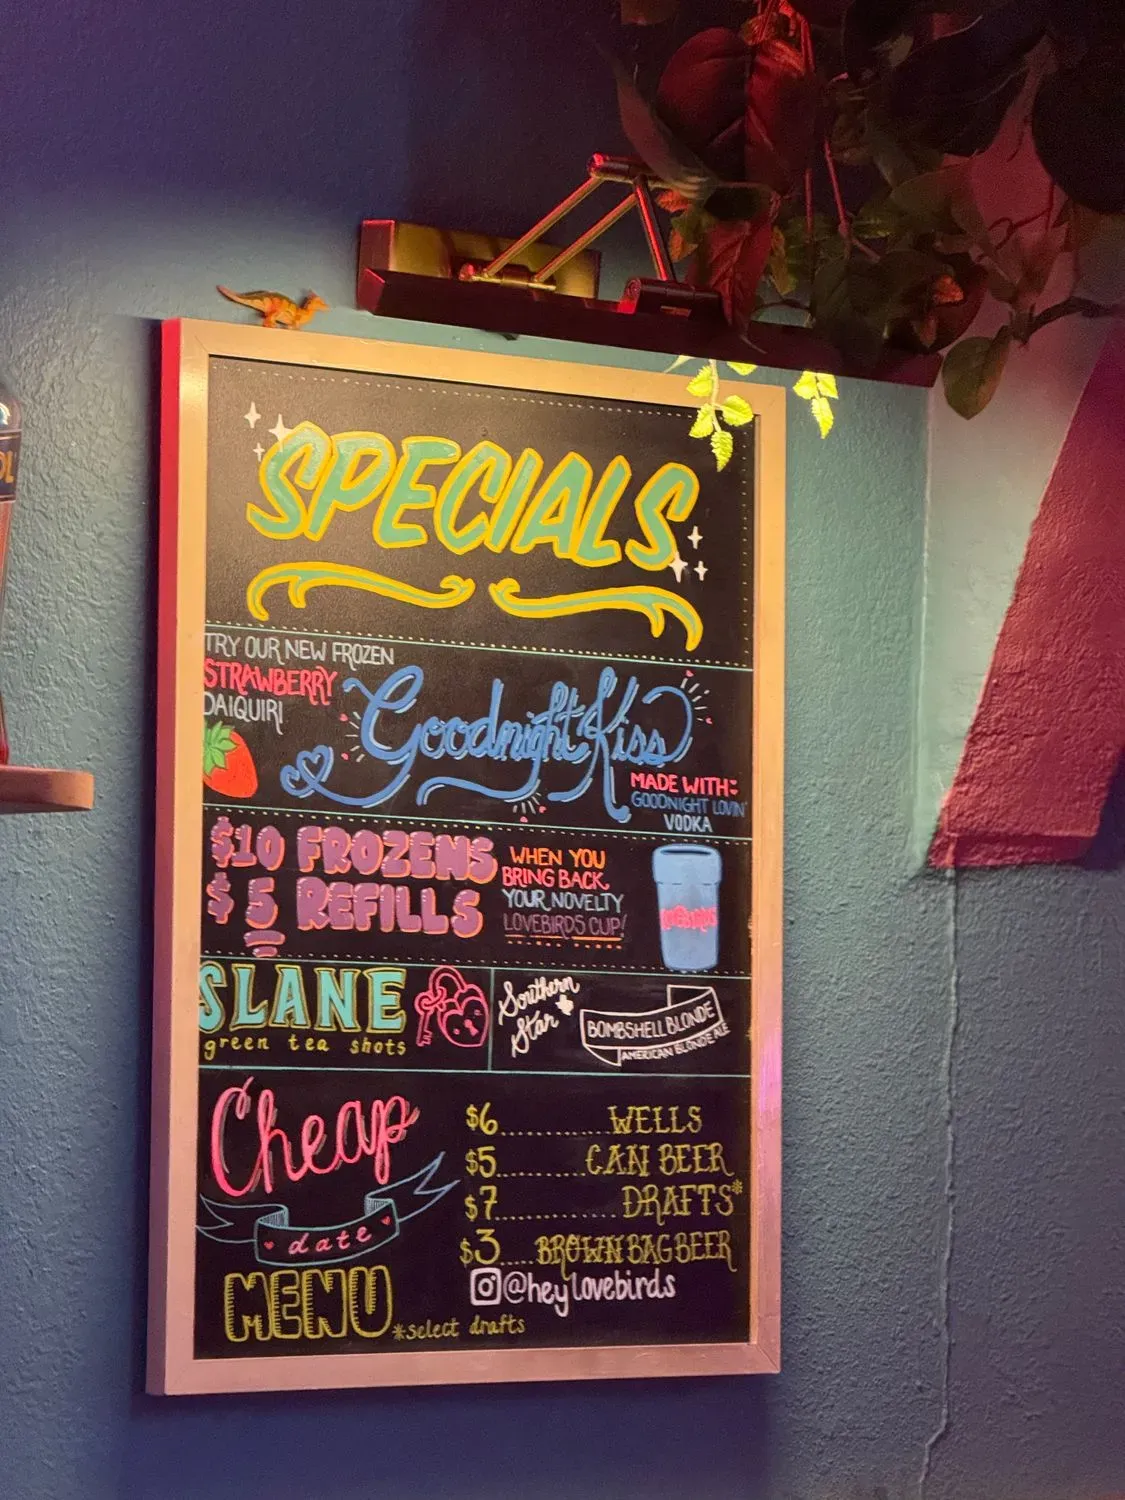 SPECIALS
TRY OUR NEW FROZEN
STRAWBERRY
DAIQUIRI
Goodnight Kiss
MADE WITH:
GOODNIGHT LOVIN'
VODKA
$10 FROZENS
$5 REFILLS
WHEN YOU
BRING BACK
YOUR NOVELTY
LOVEBIRDS CUP!
LOVEBIRDS
SLANE
green tea shots
Southern
Star
BOMBSHELL BLONDE
AMERICAN BLONDE ALE
Cheap
date
MENU
$6............WELLS
$5.........CAN BEER
$7.............DRAFTS*
$3....BROWN BAG BEER
@heylovebirds
*select drafts